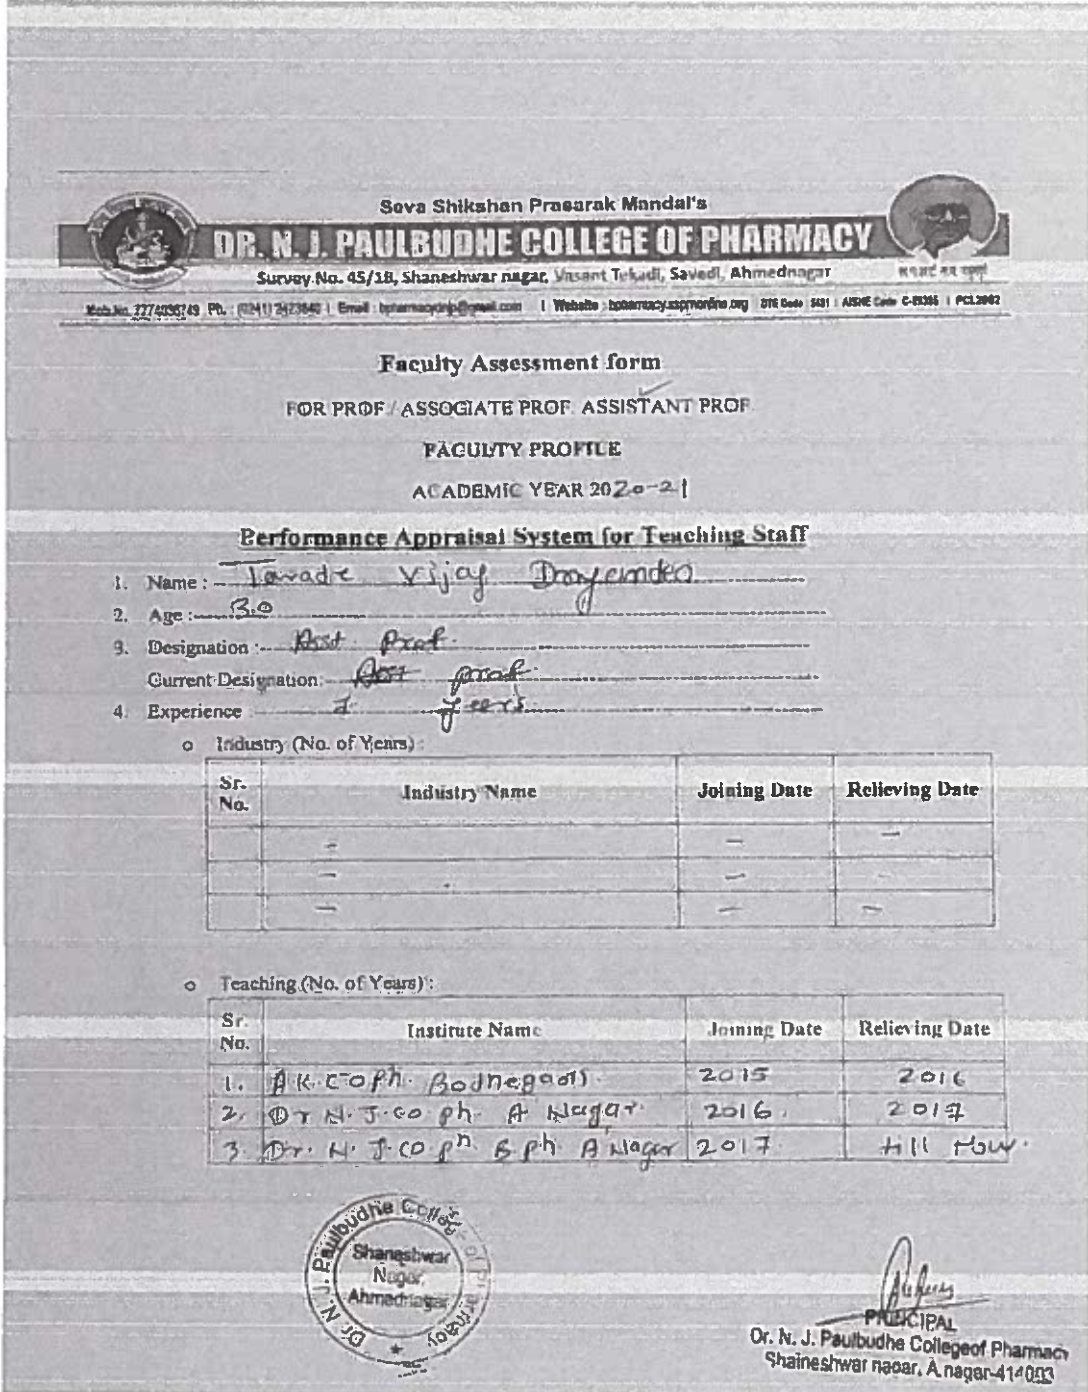 Sava Shikshan Prasarak Mandal's
DR. N. J. PAULBUDHE COLLEGE OF PHARMACY
Survey No. 45/1B, Shaneshwar nagar, Vasant Tekadi, Savedi, Ahmednagar
Ph. : (0241) 2423642 | Email : | Website : DTE Code 5431 | AISHE Code
Faculty Assessment form
FOR PROF / ASSOCIATE PROF. ASSISTANT PROF.
FACULTY PROFILE
ACADEMIC YEAR 2020-21
Performance Appraisal System for Teaching Staff
1. Name : Tawade Vijay
2. Age : 30
3. Designation : Asst Prof.
Current Designation: Asst prof.
4. Experience years
o Industry (No. of Years) :
Sr. No. Industry Name Joining Date Relieving Date
- - -
- - -
- - -
o Teaching (No. of Years) :
Sr. No. Institute Name Joining Date Relieving Date
1. A.K. C O Ph. 2015 2016
2. Dr N. J. co ph. A Nagar. 2016. 2017
3. Dr. N. J. co ph. B ph. A Nagar 2017. till now.
Dr. N. J. Paulbudhe College of Pharmacy
Shaneshwar
Nagar,
Ahmednagar
PRINCIPAL
Dr. N. J. Paulbudhe Collegeof Pharmacy
Shaineshwar nagar, A.nagar-414003